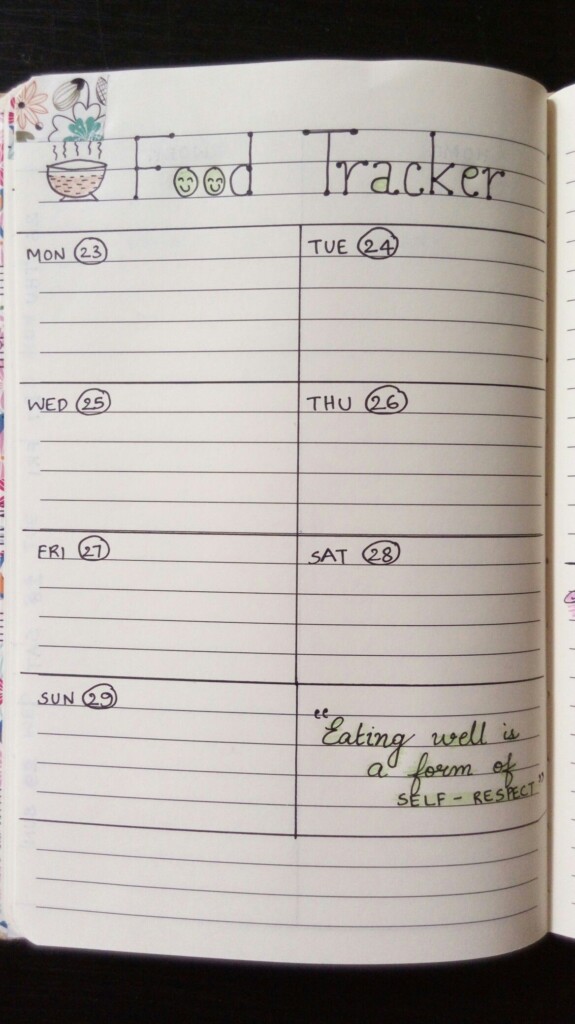 Food Tracker
MON 23
TUE 24
WED 25
THU 26
FRI 27
SAT 28
SUN 29
"Eating well is
a form of
SELF - RESPECT"